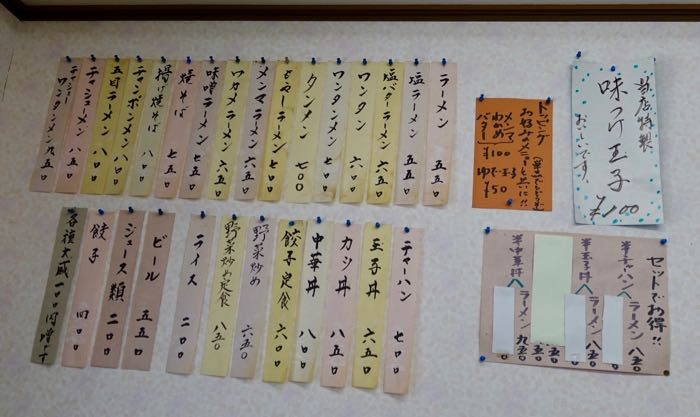 ラーメン 五五〇
塩ラーメン 五五〇
塩バターラーメン 六五〇
ワンタン 六〇〇
ワンタンメン 七〇〇
タンメン 七〇〇
もやしラーメン 六五〇
メンマラーメン 六五〇
ワカメラーメン 六五〇
味噌ラーメン 七五〇
焼そば 七五〇
揚げ焼そば 八〇〇
チャンポンメン 八〇〇
五目ラーメン 八〇〇
チャシューメン 八五〇
チャシューワンタンメン 九五〇
チャーハン 七〇〇
玉子丼 六五〇
カツ丼 八五〇
中華丼 八〇〇
餃子定食 六〇〇
野菜炒め 六五〇
野菜炒め定食 八五〇
ライス 二〇〇
ビール 五五〇
ジュース類 二〇〇
餃子 四〇〇
各種大盛一〇〇円増し
トッピング
お好みのメニューと共に!!
メンマ
わかめ
バター
¥100
ゆで玉子
¥50
当店特製
味つけ玉子
おいしいです
¥100
セットでお得!!
半チャーハン
ラーメン 八五〇
半玉子丼
ラーメン 八五〇
半中華丼
ラーメン 九五〇